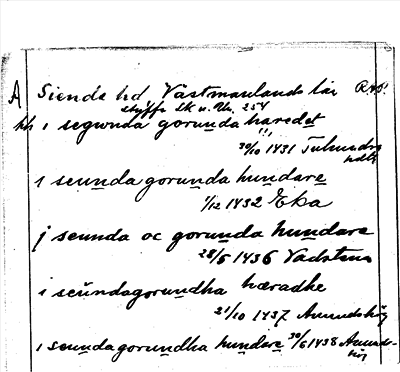 A Siende hd Västmanlands län RAP.
Styffe Sk u. Un. 254
hh i segwnda gorunda hæredet
!!!
30/10 1431 Tuhundra
ndtb
i seunda gorunda hundare
1/12 1432 Eka
j seunda oc gorunda hundare
28/6 1436 Vadstena
i scŭndagorundha hæradhe
21/10 1437 Amundshög
i seoundagorundha hundare 30/6 1438 Amunds-
hög